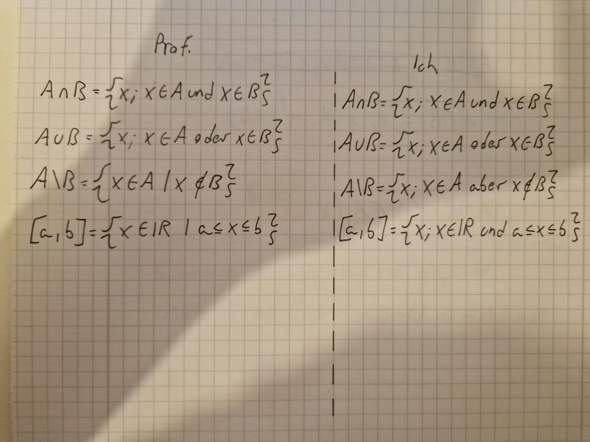 Prof.
A∩B = {x; x∈A und x∈B}
A∪B = {x; x∈A oder x∈B}
A\B = {x∈A | x∉B}
[a,b] = {x∈ℝ | a≤x≤b}
Ich
A∩B = {x; x∈A und x∈B}
A∪B = {x; x∈A oder x∈B}
A\B = {x; x∈A aber x∉B}
[a,b] = {x; x∈ℝ und a≤x≤b}